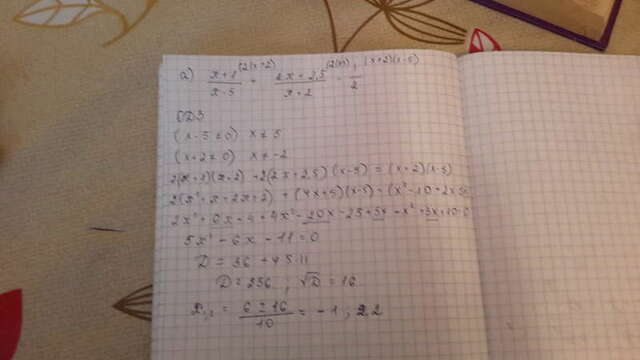 a) (x+1)/(x-5) (2(x+2) + (2x+2,5)/(x+2) (2(x-5) = 1/2 (x+2)(x-5)
ОДЗ
(x-5≠0) x≠5
(x+2≠0) x≠-2
2(x+1)(x+2)+2(2x+2,5)(x-5)=(x+2)(x-5)
2(x²+x+2x+2)+(4x+5)(x-5)=(x²-10+2x-5x)
2x²+6x+4+4x²-20x-25+5x-x²+3x+10=0
5x²-6x-11=0
D=36+4·5·11
D=256; √D=16
x₁,₂=(6±16)/10=-1; 2,2